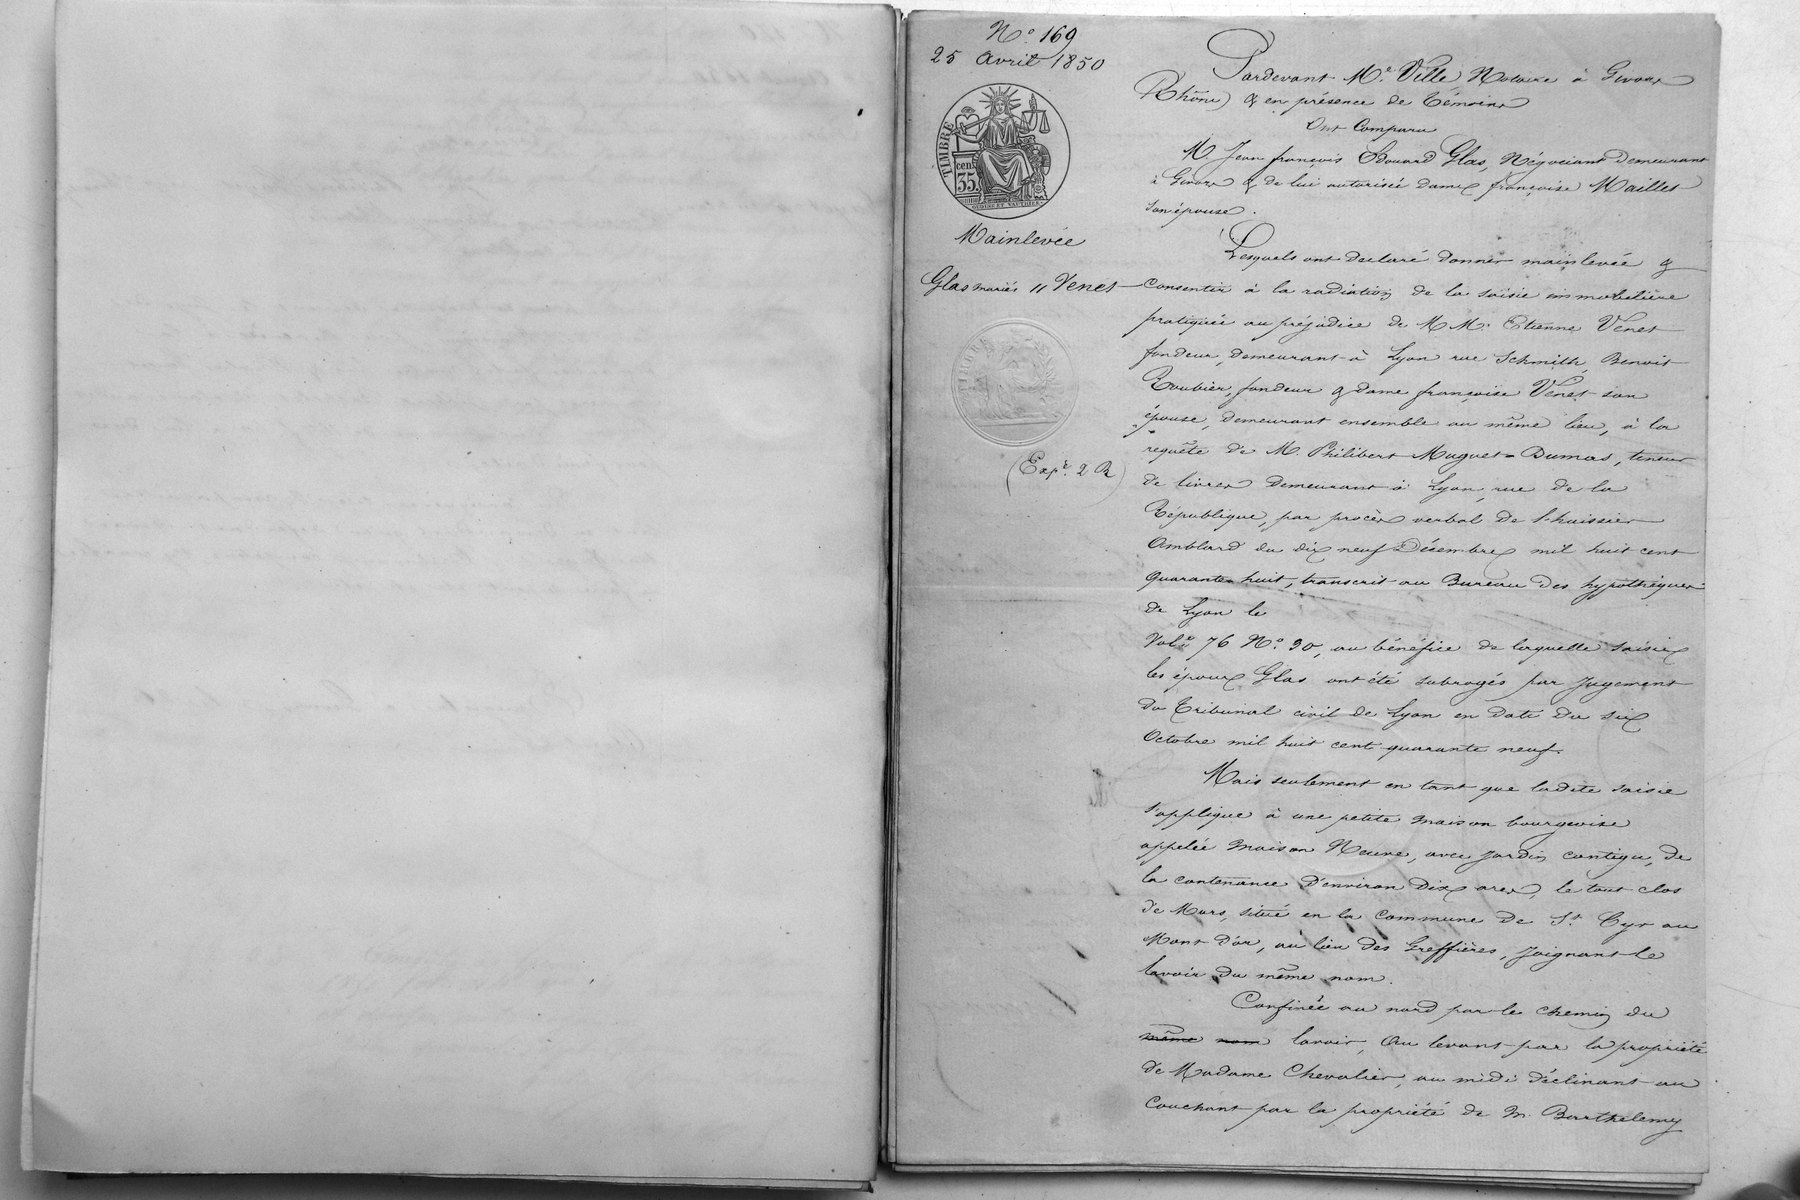 N.° 169
25 Avril 1850
TIMBRE
cen.
35.
Mainlevée
Glas mariés // Venet
(Exp.e 2 R)
Pardevant M.e Ville, Notaire à Givors
(Rhône) & en présence de Témoins
Ont Comparu
M. Jean françois Edouard Glas, Négociant demeurant
à Givors & de lui autorisée dame françoise Maillet
son épouse.
Lesquels ont déclaré donner mainlevée &
consentir à la radiation de la saisie immobilière
pratiquée au préjudice de M M. Etienne Venet
fondeur, demeurant à Lyon rue Schmith, Benoit
Roubier, fondeur & dame françoise Venet son
épouse, demeurant ensemble au même lieu, à la
requête de M. Philibert Muguet-Dumas, teneur
de livres demeurant à Lyon, rue de la
République, par procès verbal de l'huissier
Amblard du dix neuf Décembre mil huit cent
quarante huit, transcrit au Bureau des hypothèques
de Lyon le
Vol.e 76 N.° 30, au bénéfice de laquelle saisie
les époux Glas ont été subrogés par jugement
du Tribunal civil de Lyon en date du six
Octobre mil huit cent quarante neuf.
Mais seulement en tant que ladite saisie
s'applique à une petite maison bourgeoise
appelée Maison Neuve, avec jardin contigu, de
la contenance d'environ dix ares, le tout clos
de Murs, situé en la commune de St. Cyr au
Mont d'or, au lieu des Greffières, joignant le
lavoir du même nom.
Confinée au nord par le chemin du
même nom lavoir, au levant par la propriété
de Madame Chevalier, au midi déclinant au
couchant par la propriété de M. Barthelemy